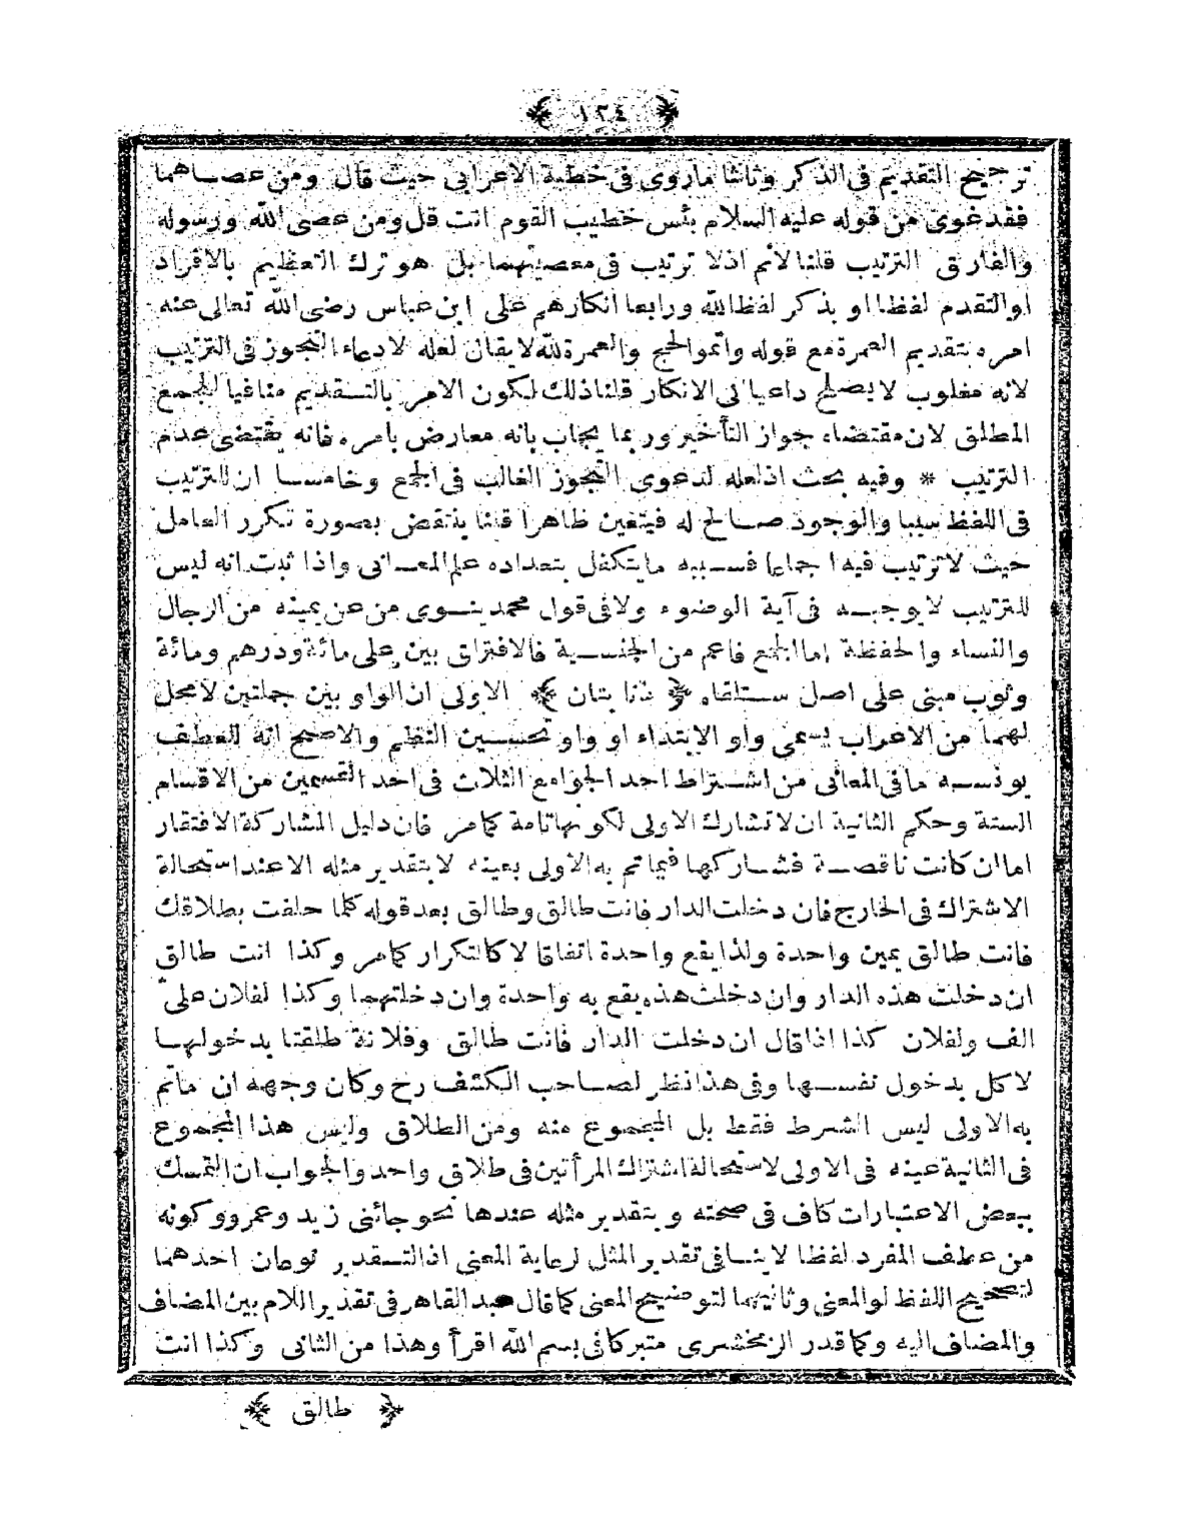 ﴿ ١٢٤ ﴾
ترجيح التقديم فى الذكر وثالثا ماروى فى خطبة الاعرابى حيث قال ومن عصاهما
فقد غوى من قوله عليه السلام بئس خطيب القوم انت قل ومن عصى الله ورسوله
والفارق الترتيب قلنا لانم اذلا ترتيب فى معصيتهما بل هو ترك التعظيم بالافراد
اوالتقدم لفظا او بذكر لفظ الله ورابعا انكارهم على ابن عباس رضى الله تعالى عنه
امره بتقديم العمرة مع قوله واتموا الحج والعمرة لله لايقال لعله لادعاء التجوز فى الترتيب
لانه مغلوب لايصلح داعيا الى الانكار قلنا ذلك لكون الامر بالتقديم منافيا للجمع
المطلق لان مقتضاه جواز التأخير وربما يجاب بانه معارض بامره فانه يقتضى عدم
الترتيب * وفيه بحث اذلعله لدعوى التجوز الغالب فى الجمع وخامسا ان للترتيب
فى اللفظ سببا والوجود صالح له فيتعين ظاهرا قلنا ينتقض بصورة تكرر العامل
حيث لاترتيب فيه اجماعا فسببه مايتكفل بتعداده علم المعانى واذا ثبت انه ليس
للترتيب لايوجبه فى آية الوضوء ولافى قول محمد ينوى من عن يمينه من الرجال
والنساء والحفظة اما الجمع فاعم من الجنسية فالافتراق بين على مائة ودرهم ومائة
وثوب مبنى على اصل ستلقاه ﴿ ذنابتان ﴾ الاولى ان الواو بين جملتين لامحل
لهما من الاعراب يسمى واو الابتداء او واو تحسين النظم والاصح انه للعطف
يونسه مافى المعانى من اشتراط احد الجوامع الثلاث فى احد القسمين من الاقسام
الستة وحكم الثانية ان لاتشارك الاولى لكونها تامة كمامر فان دليل المشاركة الافتقار
اما ان كانت ناقصة فشاركها فيماتم به الاولى بعينه لابتقدير مثله الا عند استحالة
الاشتراك فى الخارج فان دخلت الدار فانت طالق وطالق بعد قوله كلما حلفت بطلاقك
فانت طالق يمين واحدة ولذا يقع واحدة اتفاقا لا كالتكرار كمامر وكذا انت طالق
ان دخلت هذه الدار وان دخلت هذه يقع به واحدة وان دخلتهما وكذا لفلان على
الف ولفلان كذا اذا قال ان دخلت الدار فانت طالق وفلانة طلقتا بدخولها
لا كل بدخول نفسها وفى هذا نظر لصاحب الكشف رح وكان وجهه ان ماتم
به الاولى ليس الشرط فقط بل المجموع منه ومن الطلاق وليس هذا المجموع
فى الثانية عينه فى الاولى لاستحالة اشتراك المرأتين فى طلاق واحد والجواب ان التمسك
ببعض الاعتبارات كاف فى صحته و بتقدير مثله عندها نحو جائنى زيد وعمرو وكونه
من عطف المفرد لفظا لاينافى تقدير المثل لرعاية المعنى اذ التقدير نوعان احدهما
لتصحيح اللفظ لو المعنى وثانيهما لتوضيح المعنى كما قال عبد القاهر فى تقدير اللام بين المضاف
والمضاف اليه وكما قدر الزمخشرى متبركا فى بسم الله اقرأ وهذا من الثانى وكذا انت
﴿ طالق ﴾